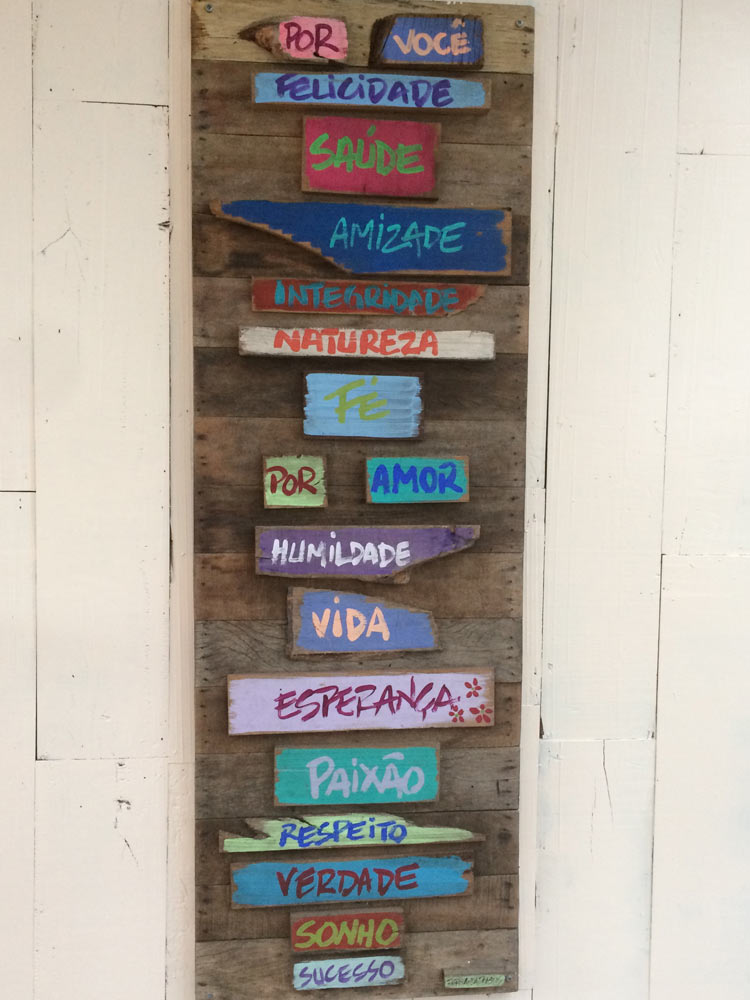 POR VOCÊ
FELICIDADE
SAÚDE
AMIZADE
INTEGRIDADE
NATUREZA
FÉ
POR AMOR
HUMILDADE
VIDA
ESPERANÇA
PAIXÃO
RESPEITO
VERDADE
SONHO
SUCESSO